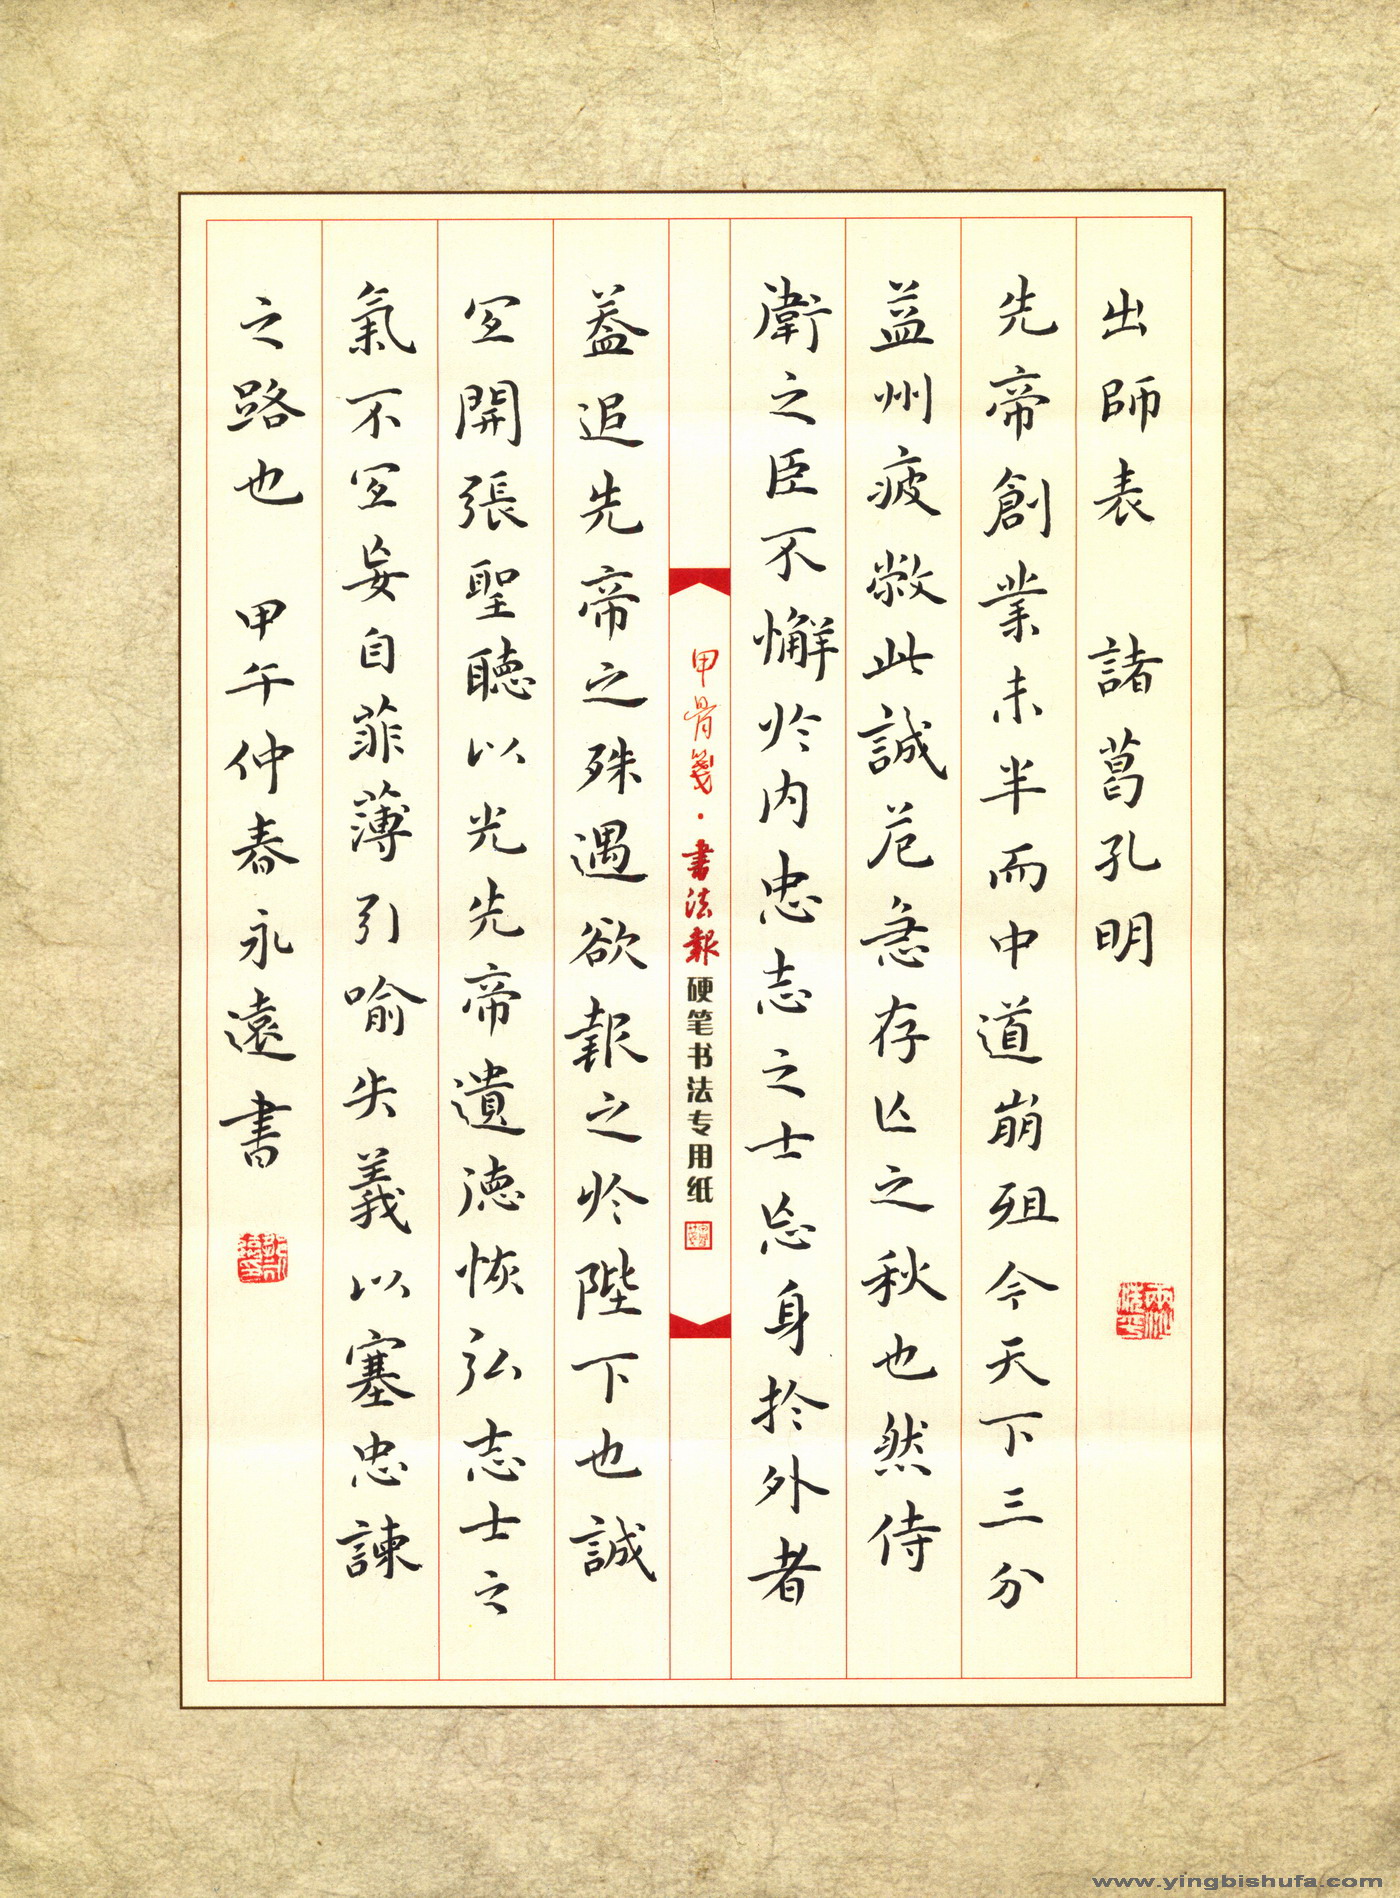 出師表 諸葛孔明
先帝創業未半而中道崩殂今天下三分
益州疲敝此誠危急存亡之秋也然侍
衛之臣不懈於内忠志之士忘身於外者
甲骨箋·書法報硬笔书法专用纸
蓋追先帝之殊遇欲報之於陛下也誠
宜開張聖聽以光先帝遺德恢弘志士之
氣不宜妄自菲薄引喻失義以塞忠諫
之路也 甲午仲春永遠書
www.yingbishufa.com